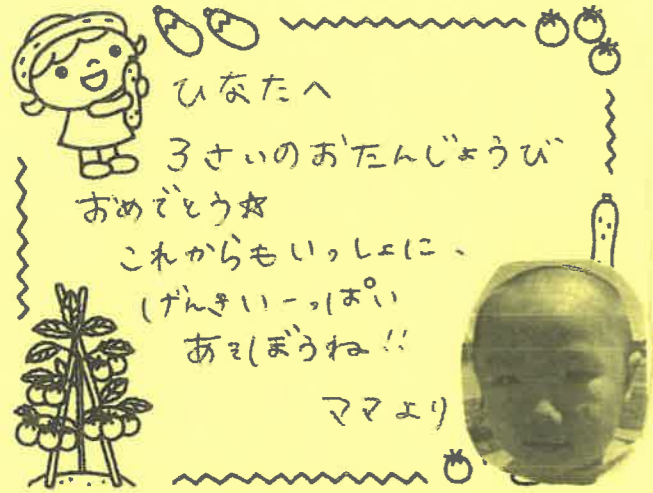 ひなたへ
3さいのおたんじょうび
おめでとう☆
これからもいっしょに、
げんきいーっぱい
あそぼうね!!
ママより